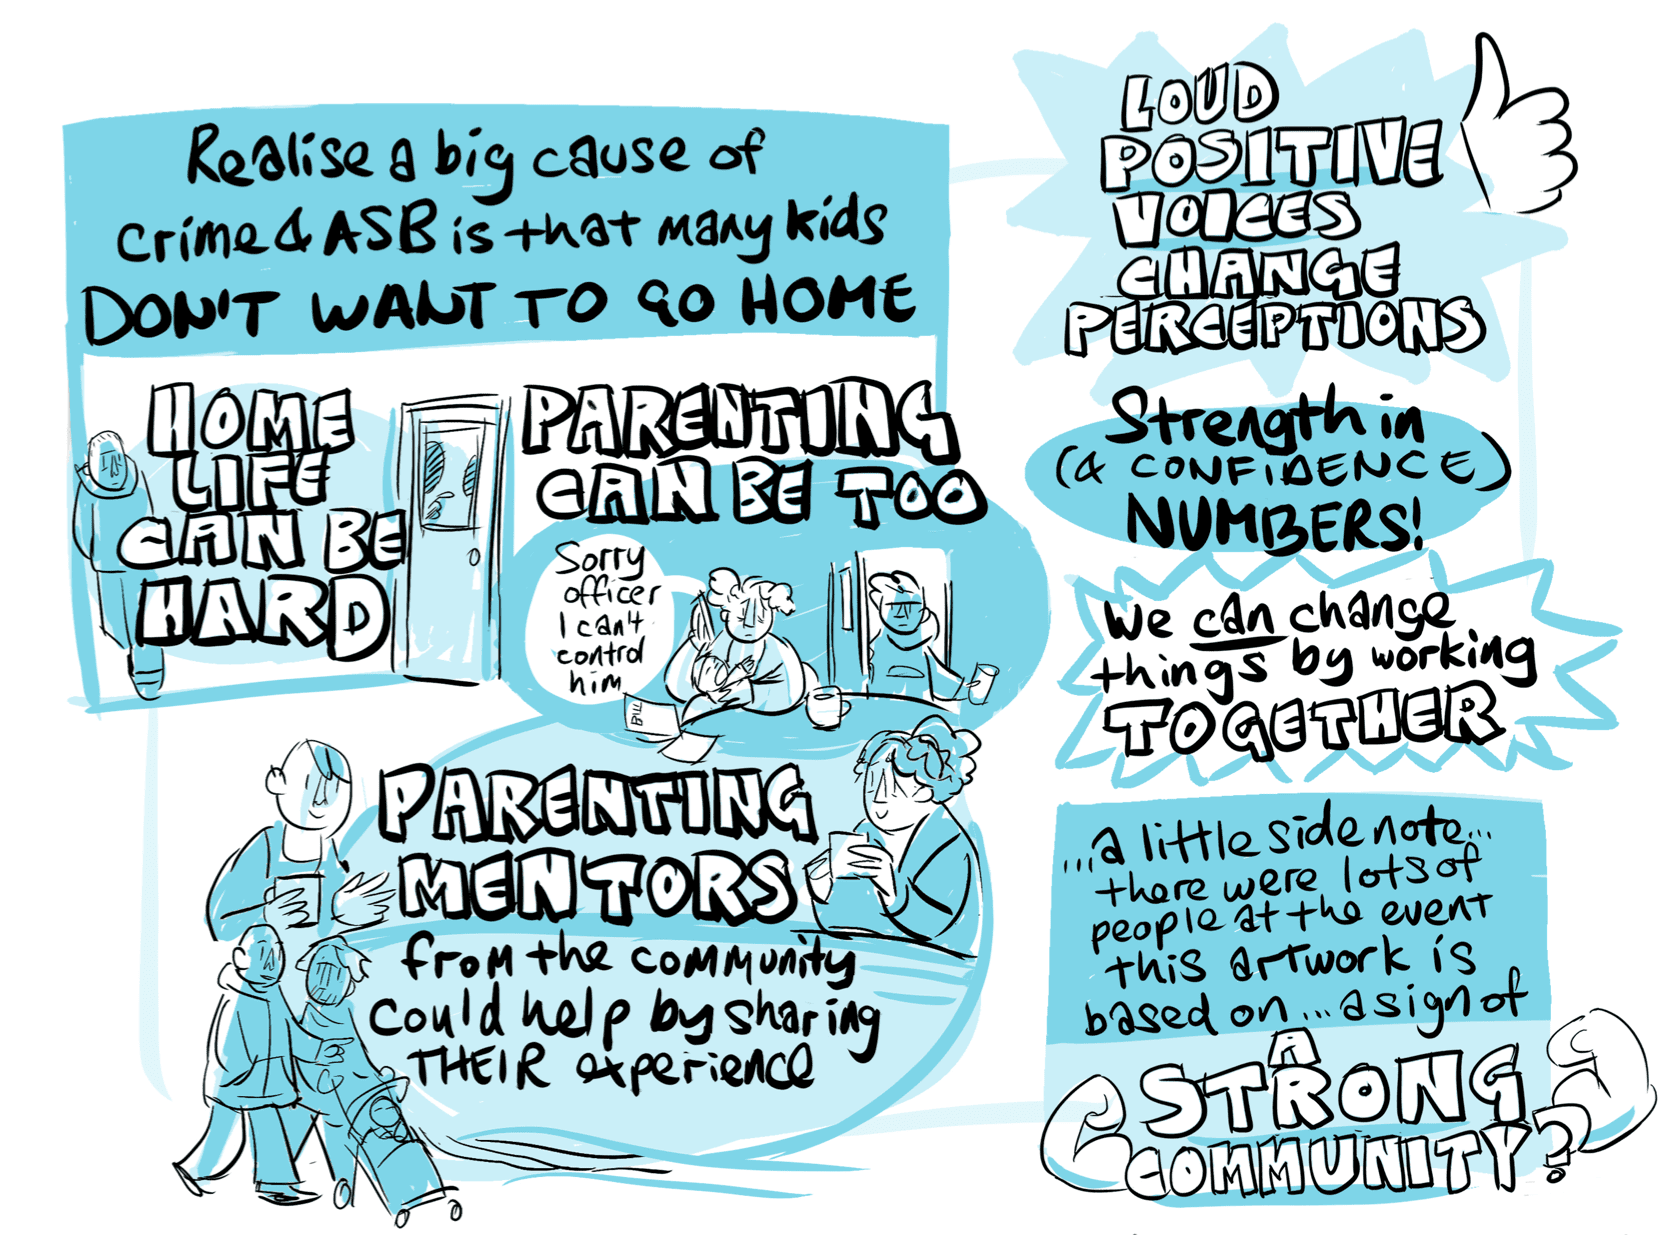 Realise a big cause of
crime & ASB is that many kids
DON'T WANT TO GO HOME
HOME
LIFE
CAN BE
HARD
PARENTING
CAN BE TOO
Sorry
officer
I can't
control
him
BILL
PARENTING
MENTORS
from the community
could help by sharing
THEIR experience
LOUD
POSITIVE
VOICES
CHANGE
PERCEPTIONS
Strength in
(& CONFIDENCE)
NUMBERS!
We can change
things by working
TOGETHER
...a little side note...
there were lots of
people at the event
this artwork is
based on... a sign of
A
STRONG
COMMUNITY?